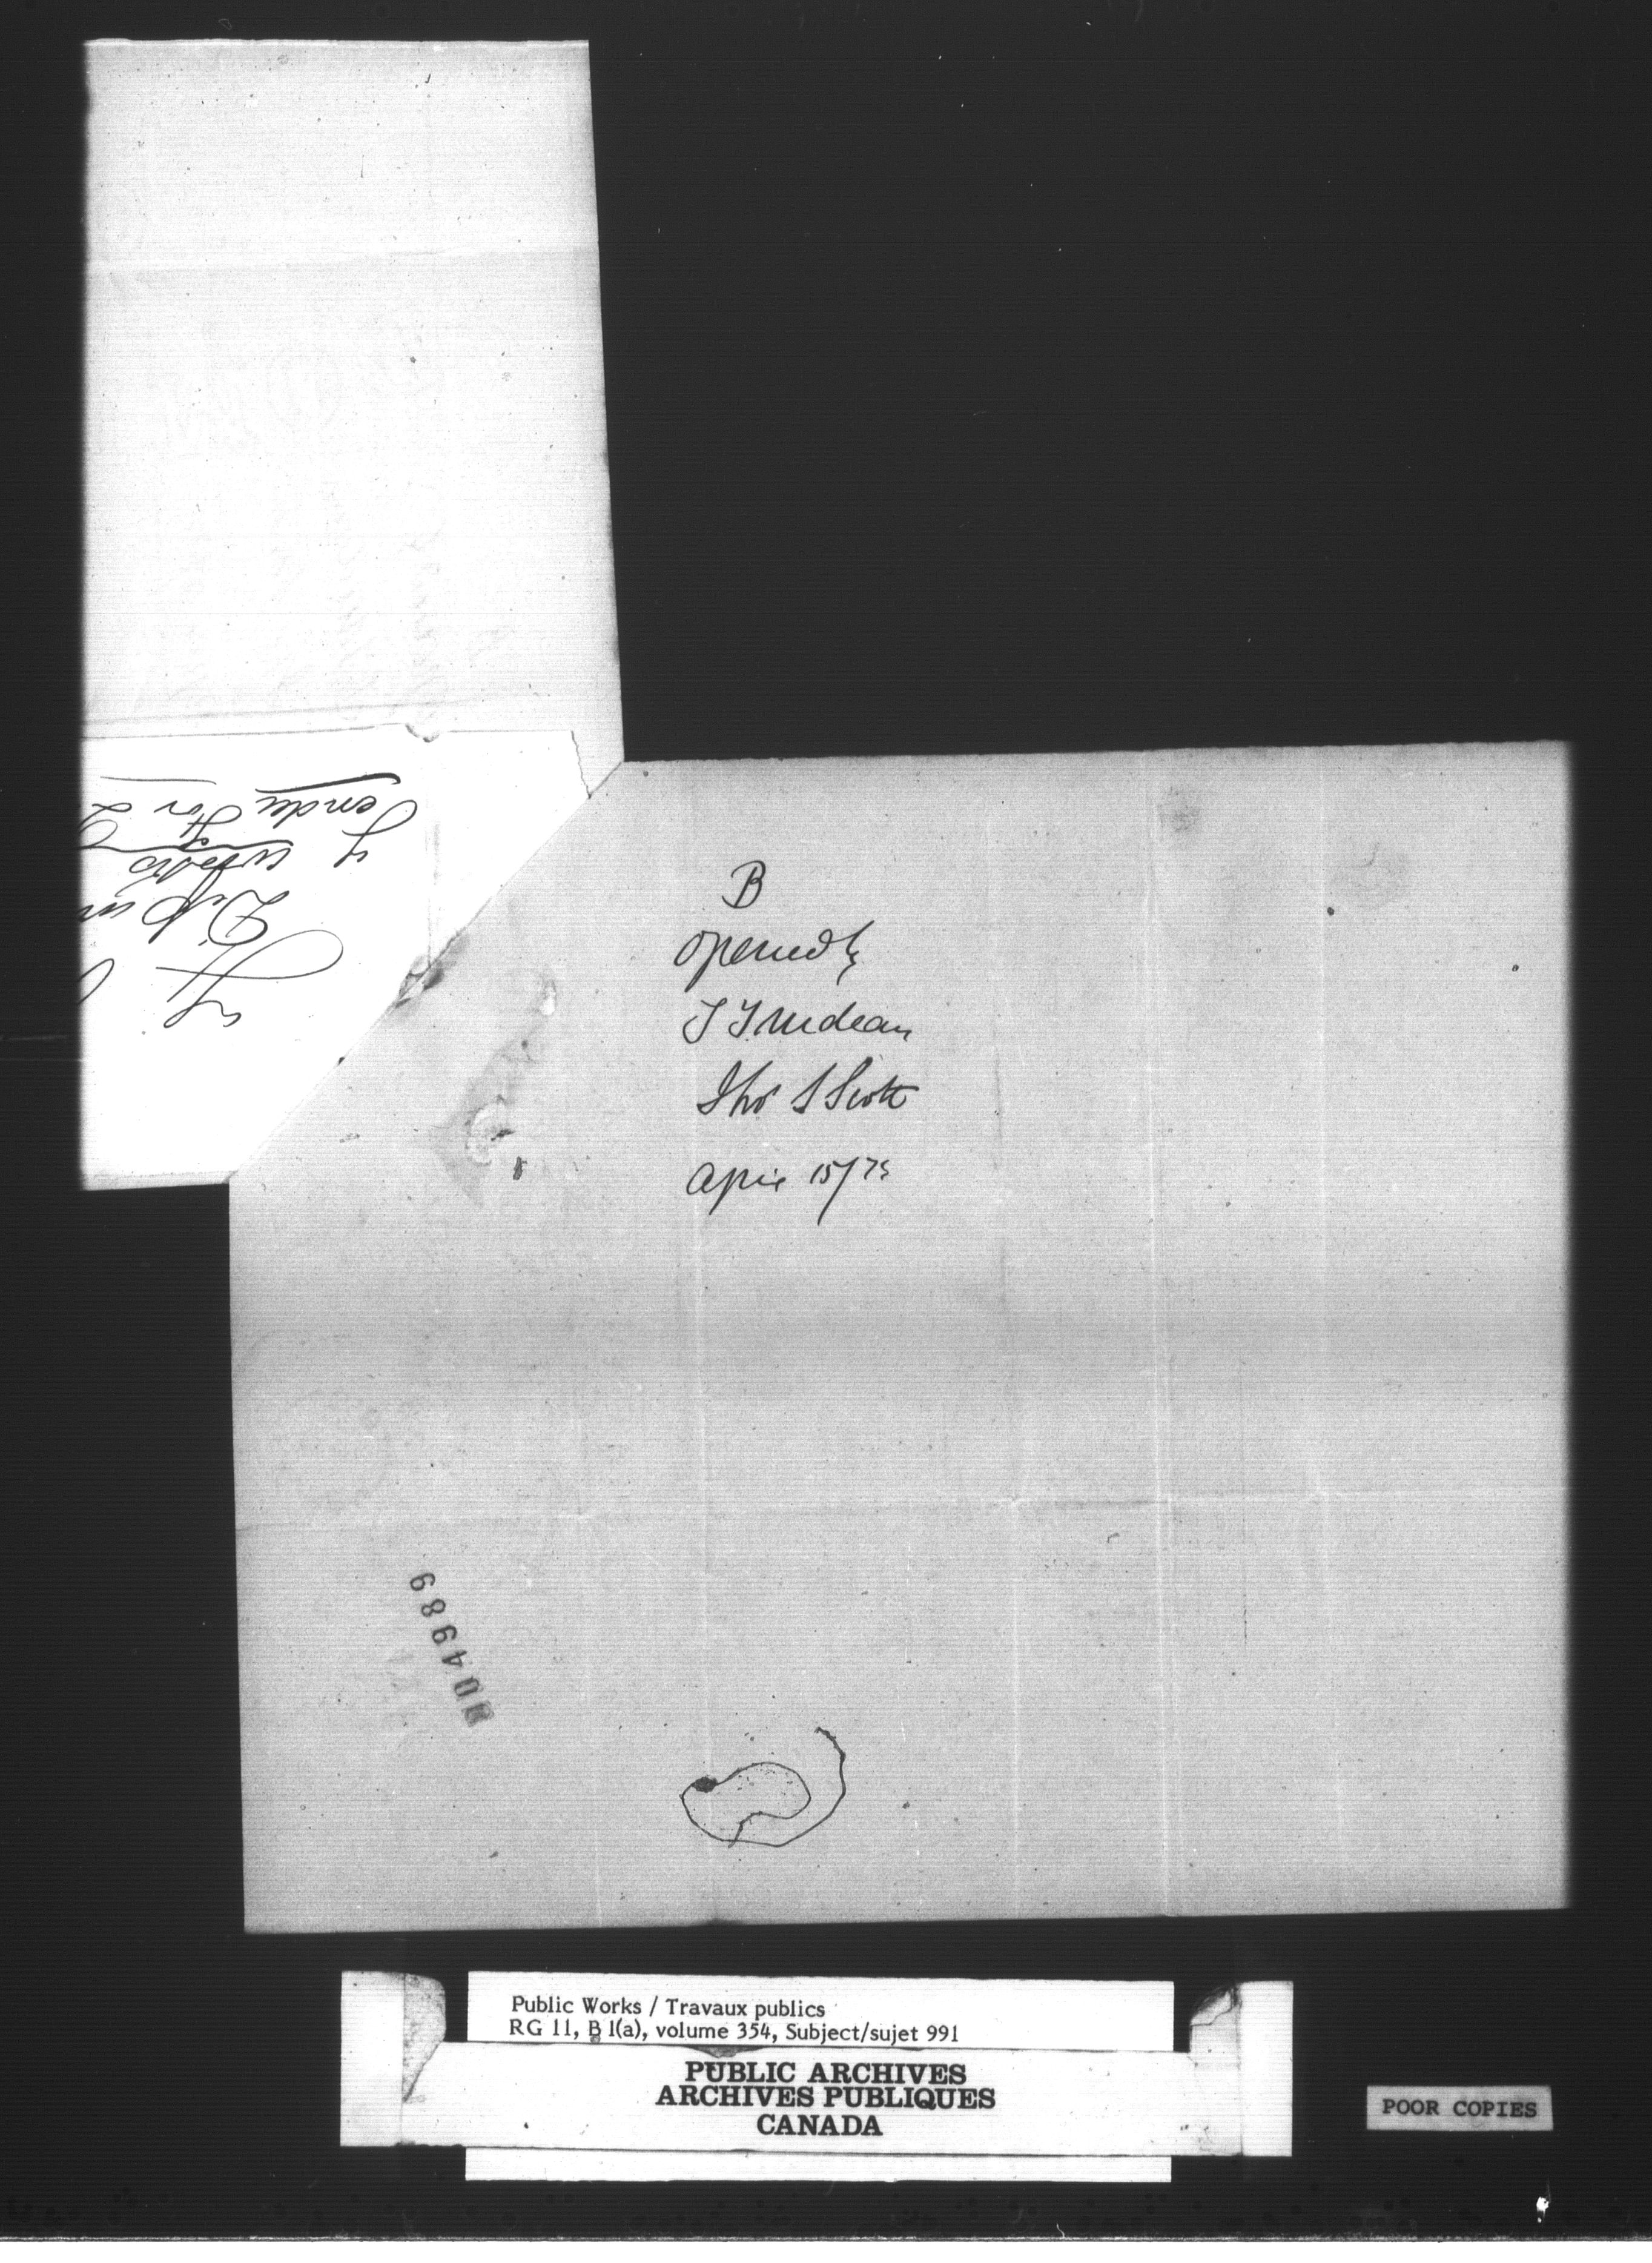 B
Opened by
T Trudeau
Thos S Scott
April 15/73
Tender For
works
Dep
004989
Public Works / Travaux publics
RG 11, B 1(a), volume 354, Subject/sujet 991
PUBLIC ARCHIVES
ARCHIVES PUBLIQUES
CANADA
POOR COPIES